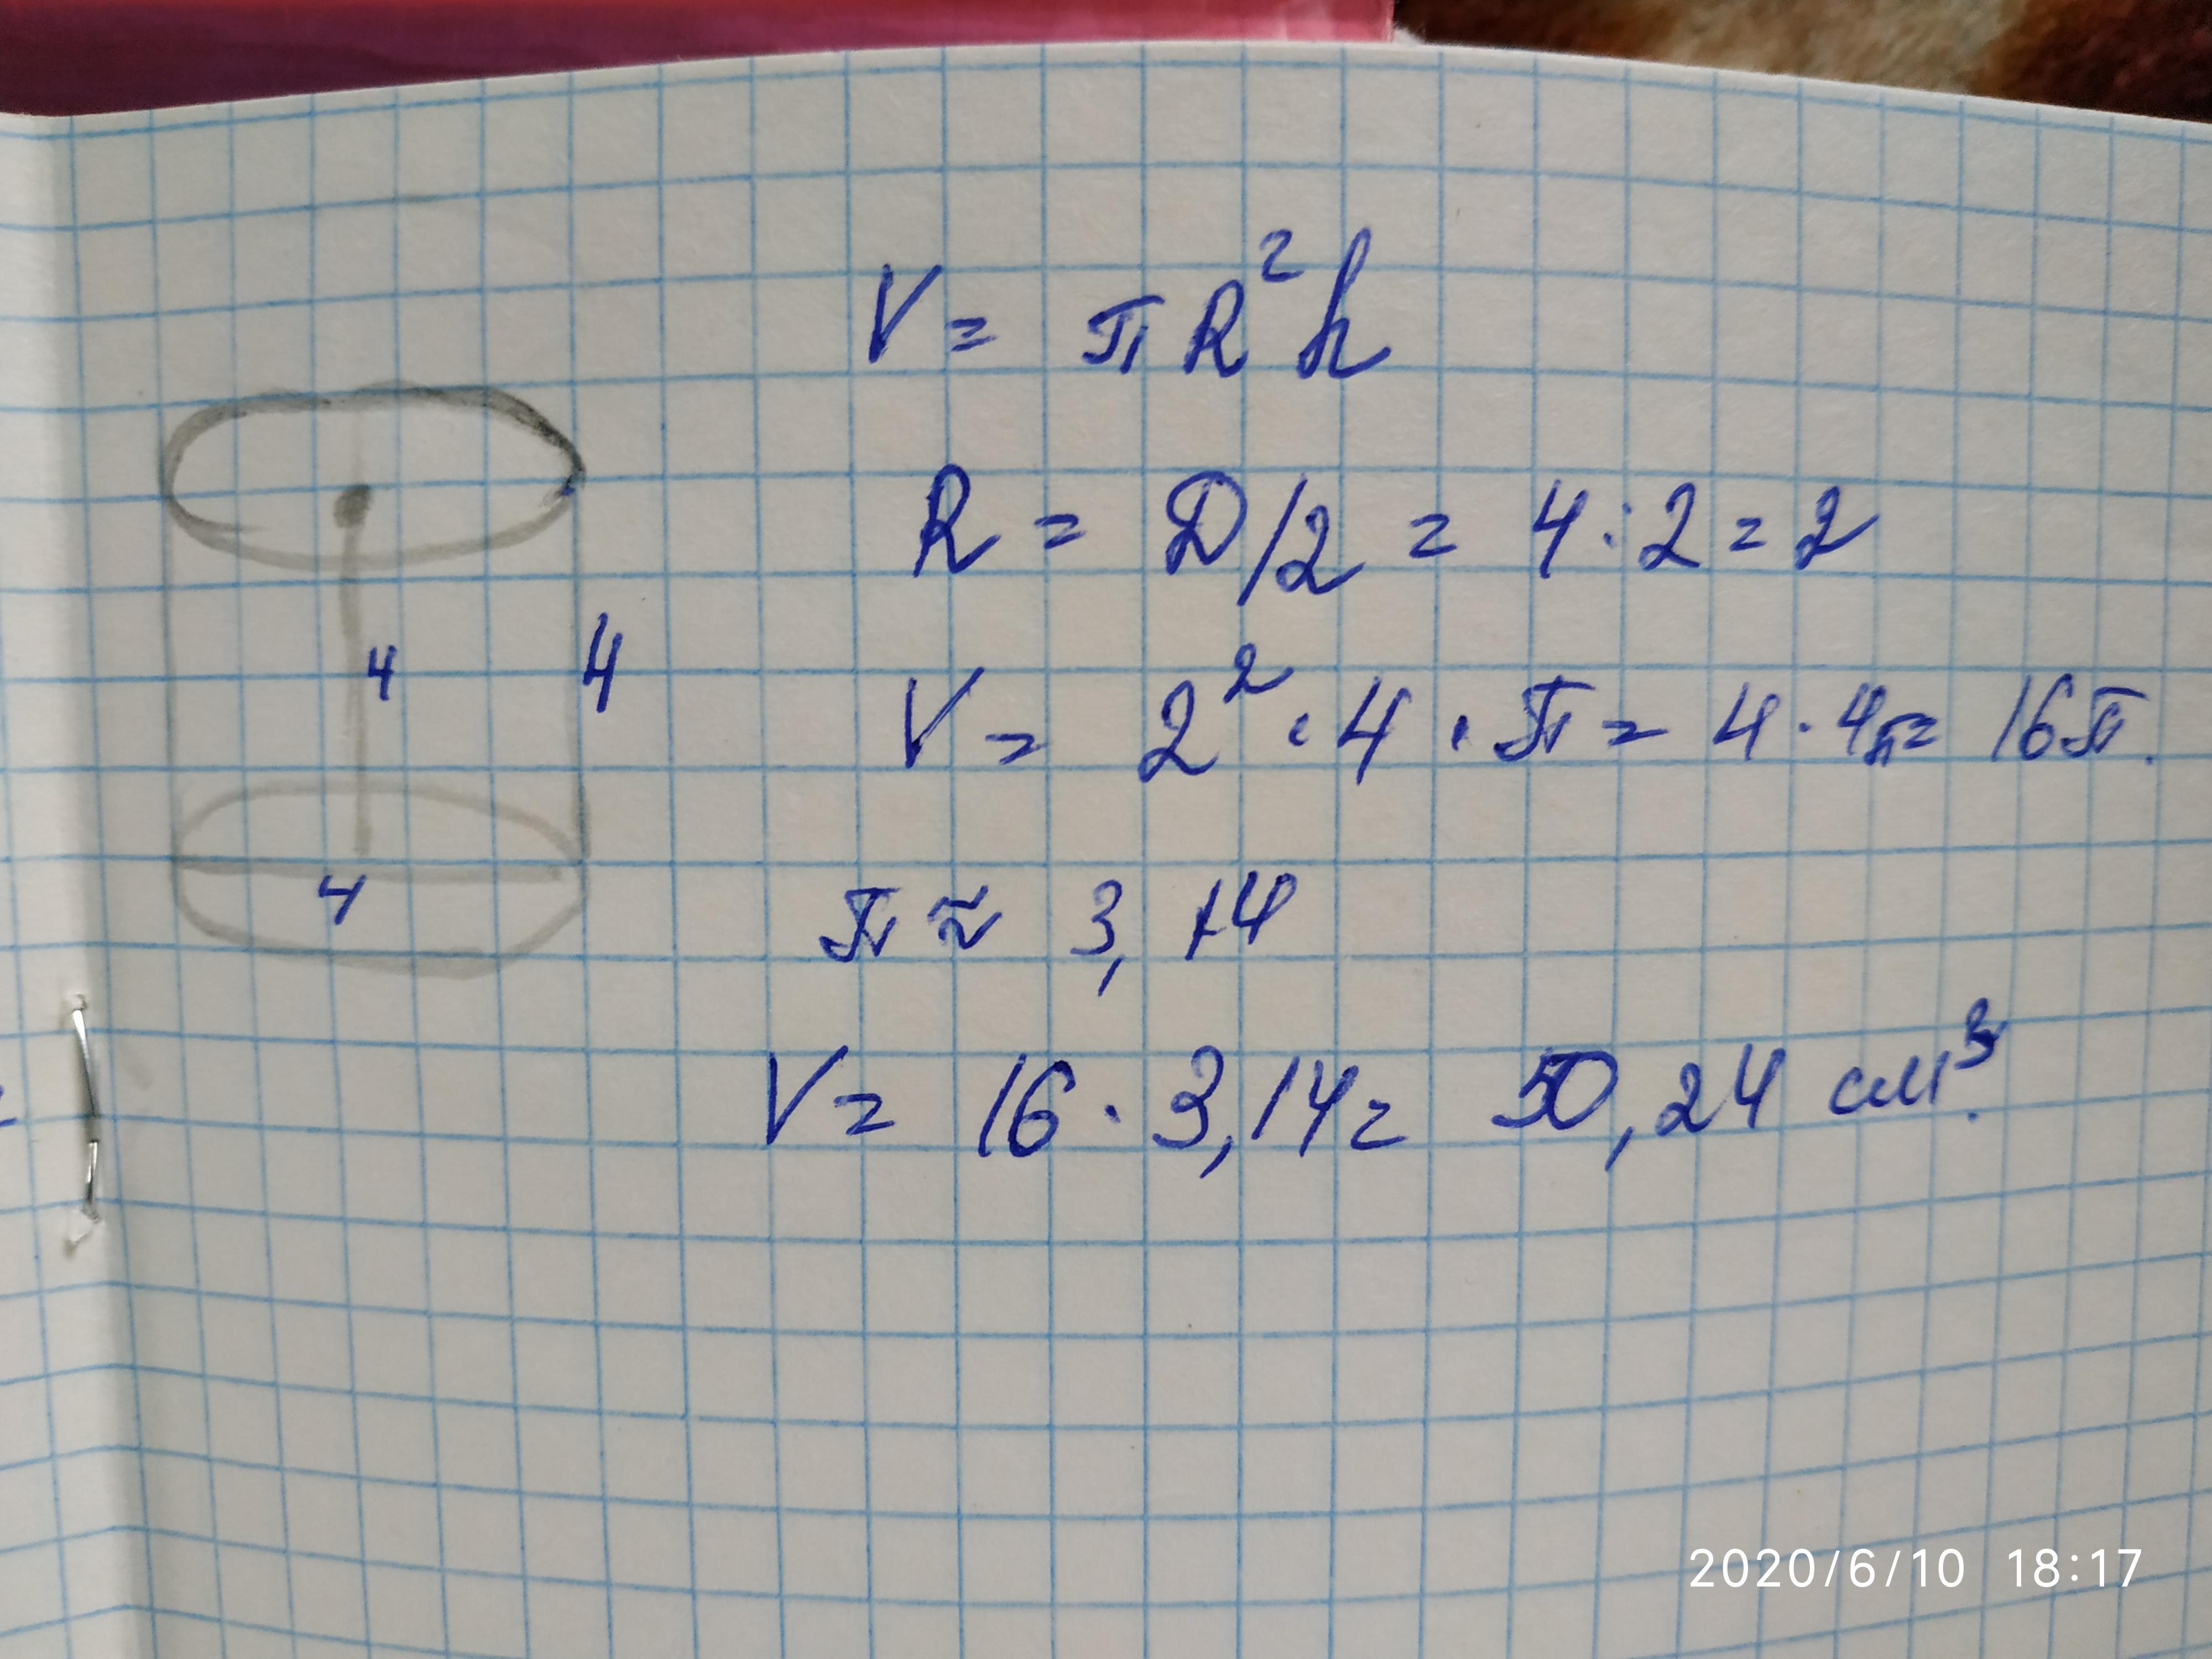 V = πR²h
R = D/2 = 4:2=2
4
4
V = 2² · 4 · π = 4 · 4π = 16π.
4
π ≈ 3,14
V = 16 · 3,14 = 50,24 см³.
2020/6/10 18:17